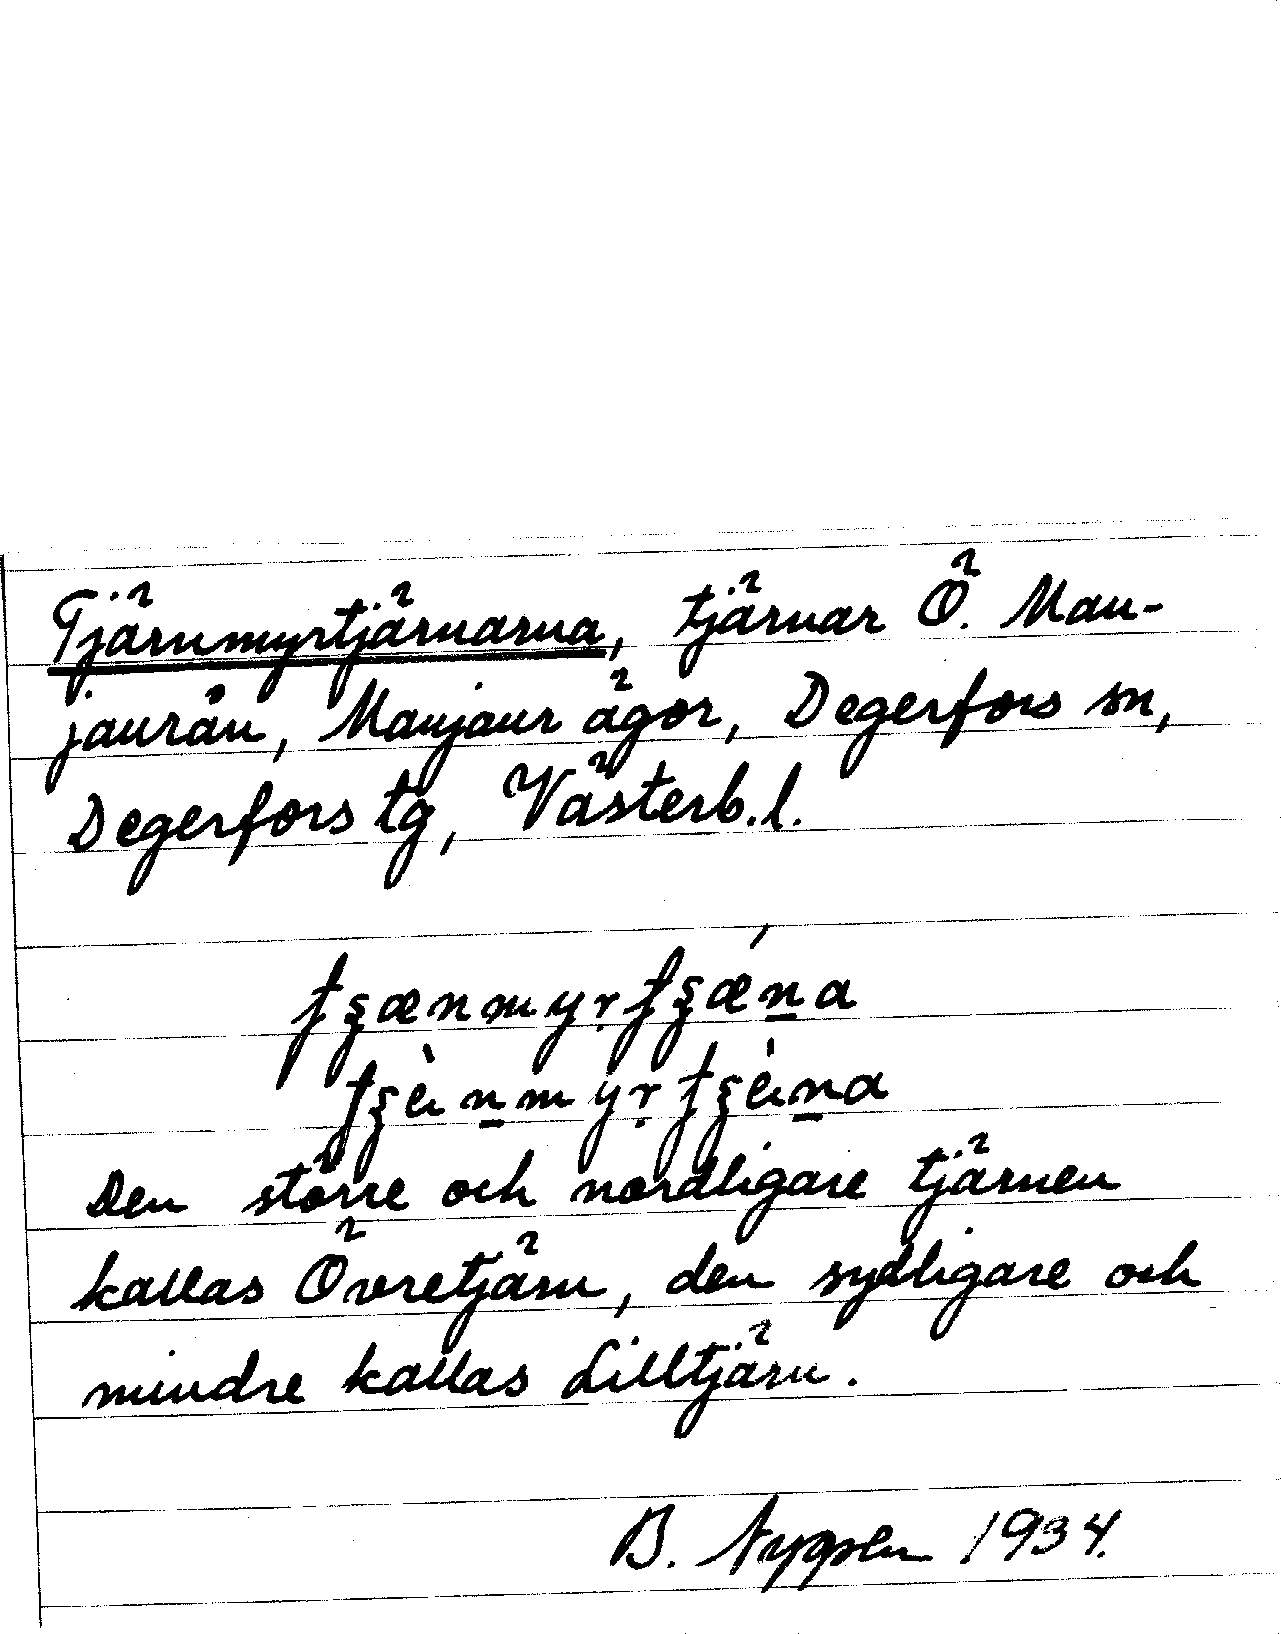 Tjärnmyrtjärnarna, tjärnar Ö. Man-
jaurån, Manjaur ägor, Degerfors sn,
Degerfors tg, Västerb.l.
Den större och nordligare tjärnen
kallas Övretjärn, den sydligare och
mindre kallas Lilltjärn.
B. 1934.